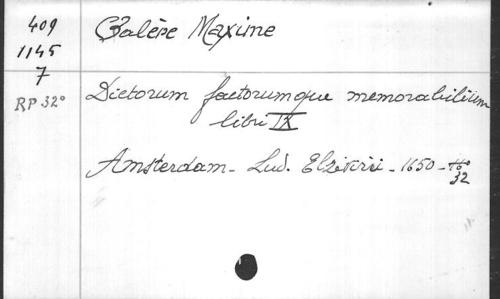 409
1145
7
RP 32°
Valère Maxime
Dictorum factorumque memorabilium
libri IX
Amsterdam - Lud. Elzivirii - 1650 -
32